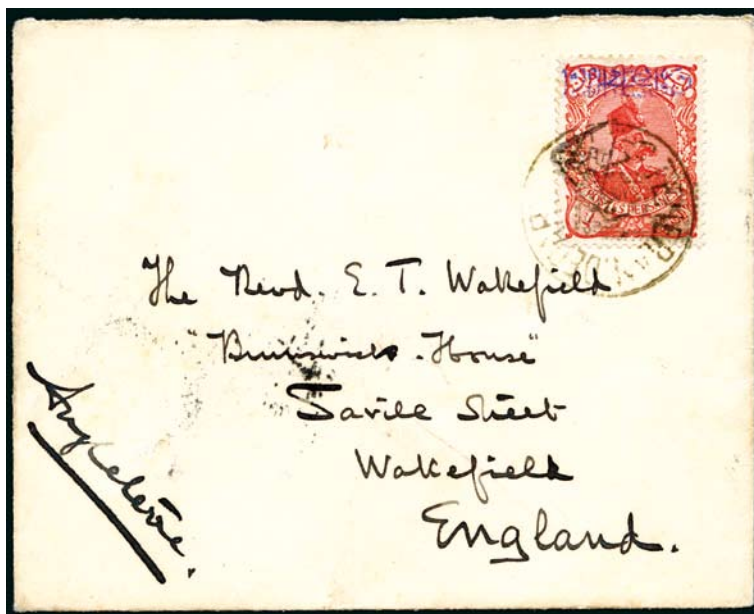 TEHERAN. DEPART
The Revd. E. T. Wakefield
"Brunswick-House"
Savile Street
Wakefield
England.
Angleterre.